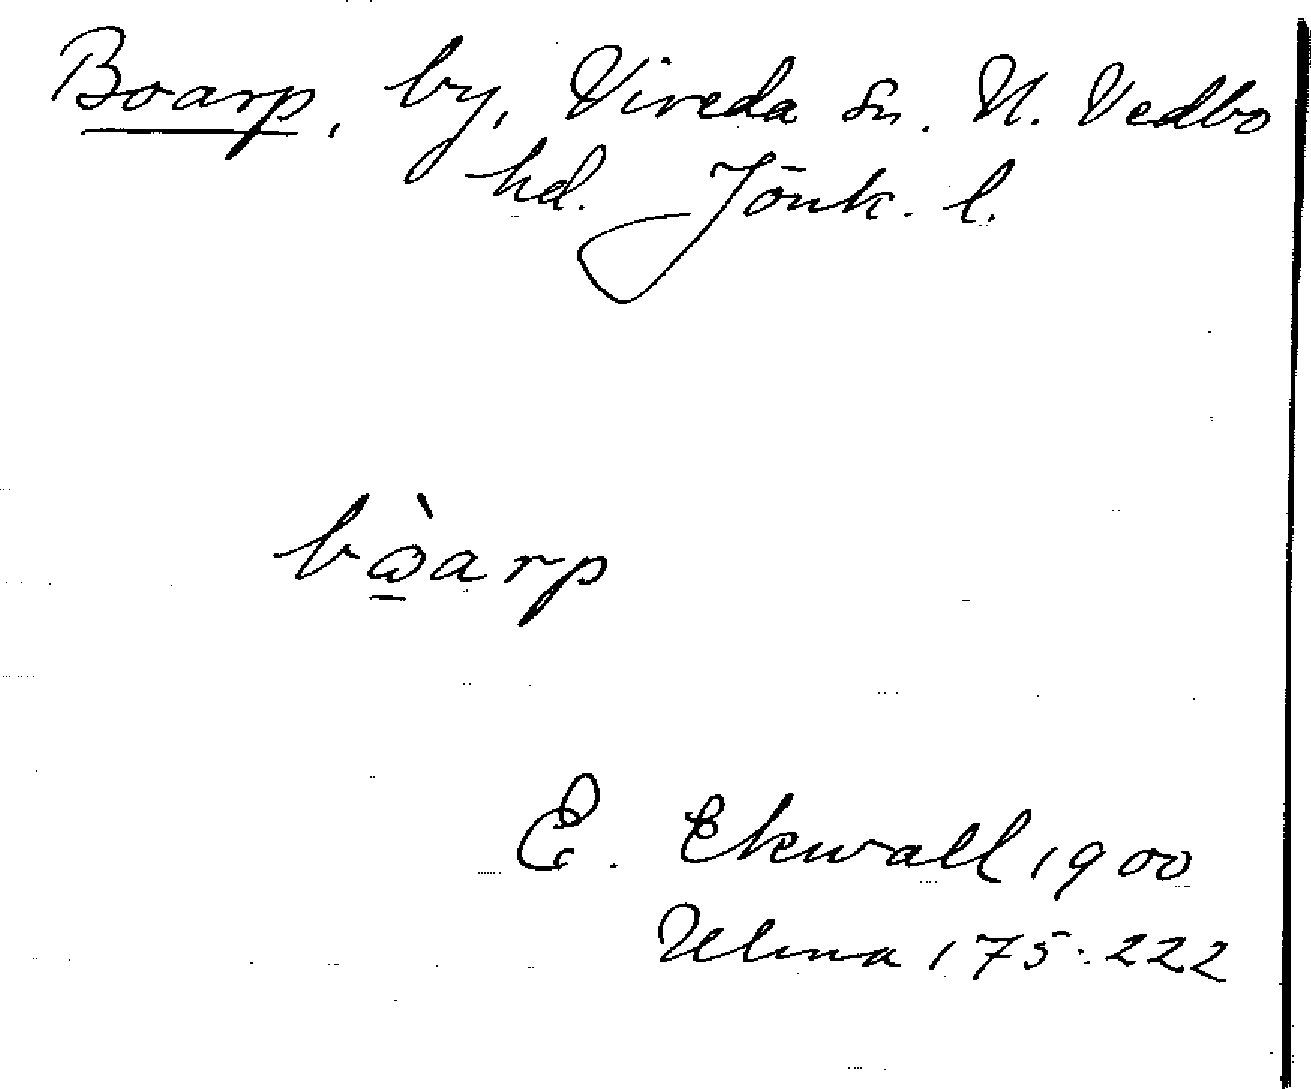 Boarp, by, Vireda sn. N. Vedbo
hd. Jönk. l.
bὼ̠arp
E. Ekwall 1900
Ulma 175:222